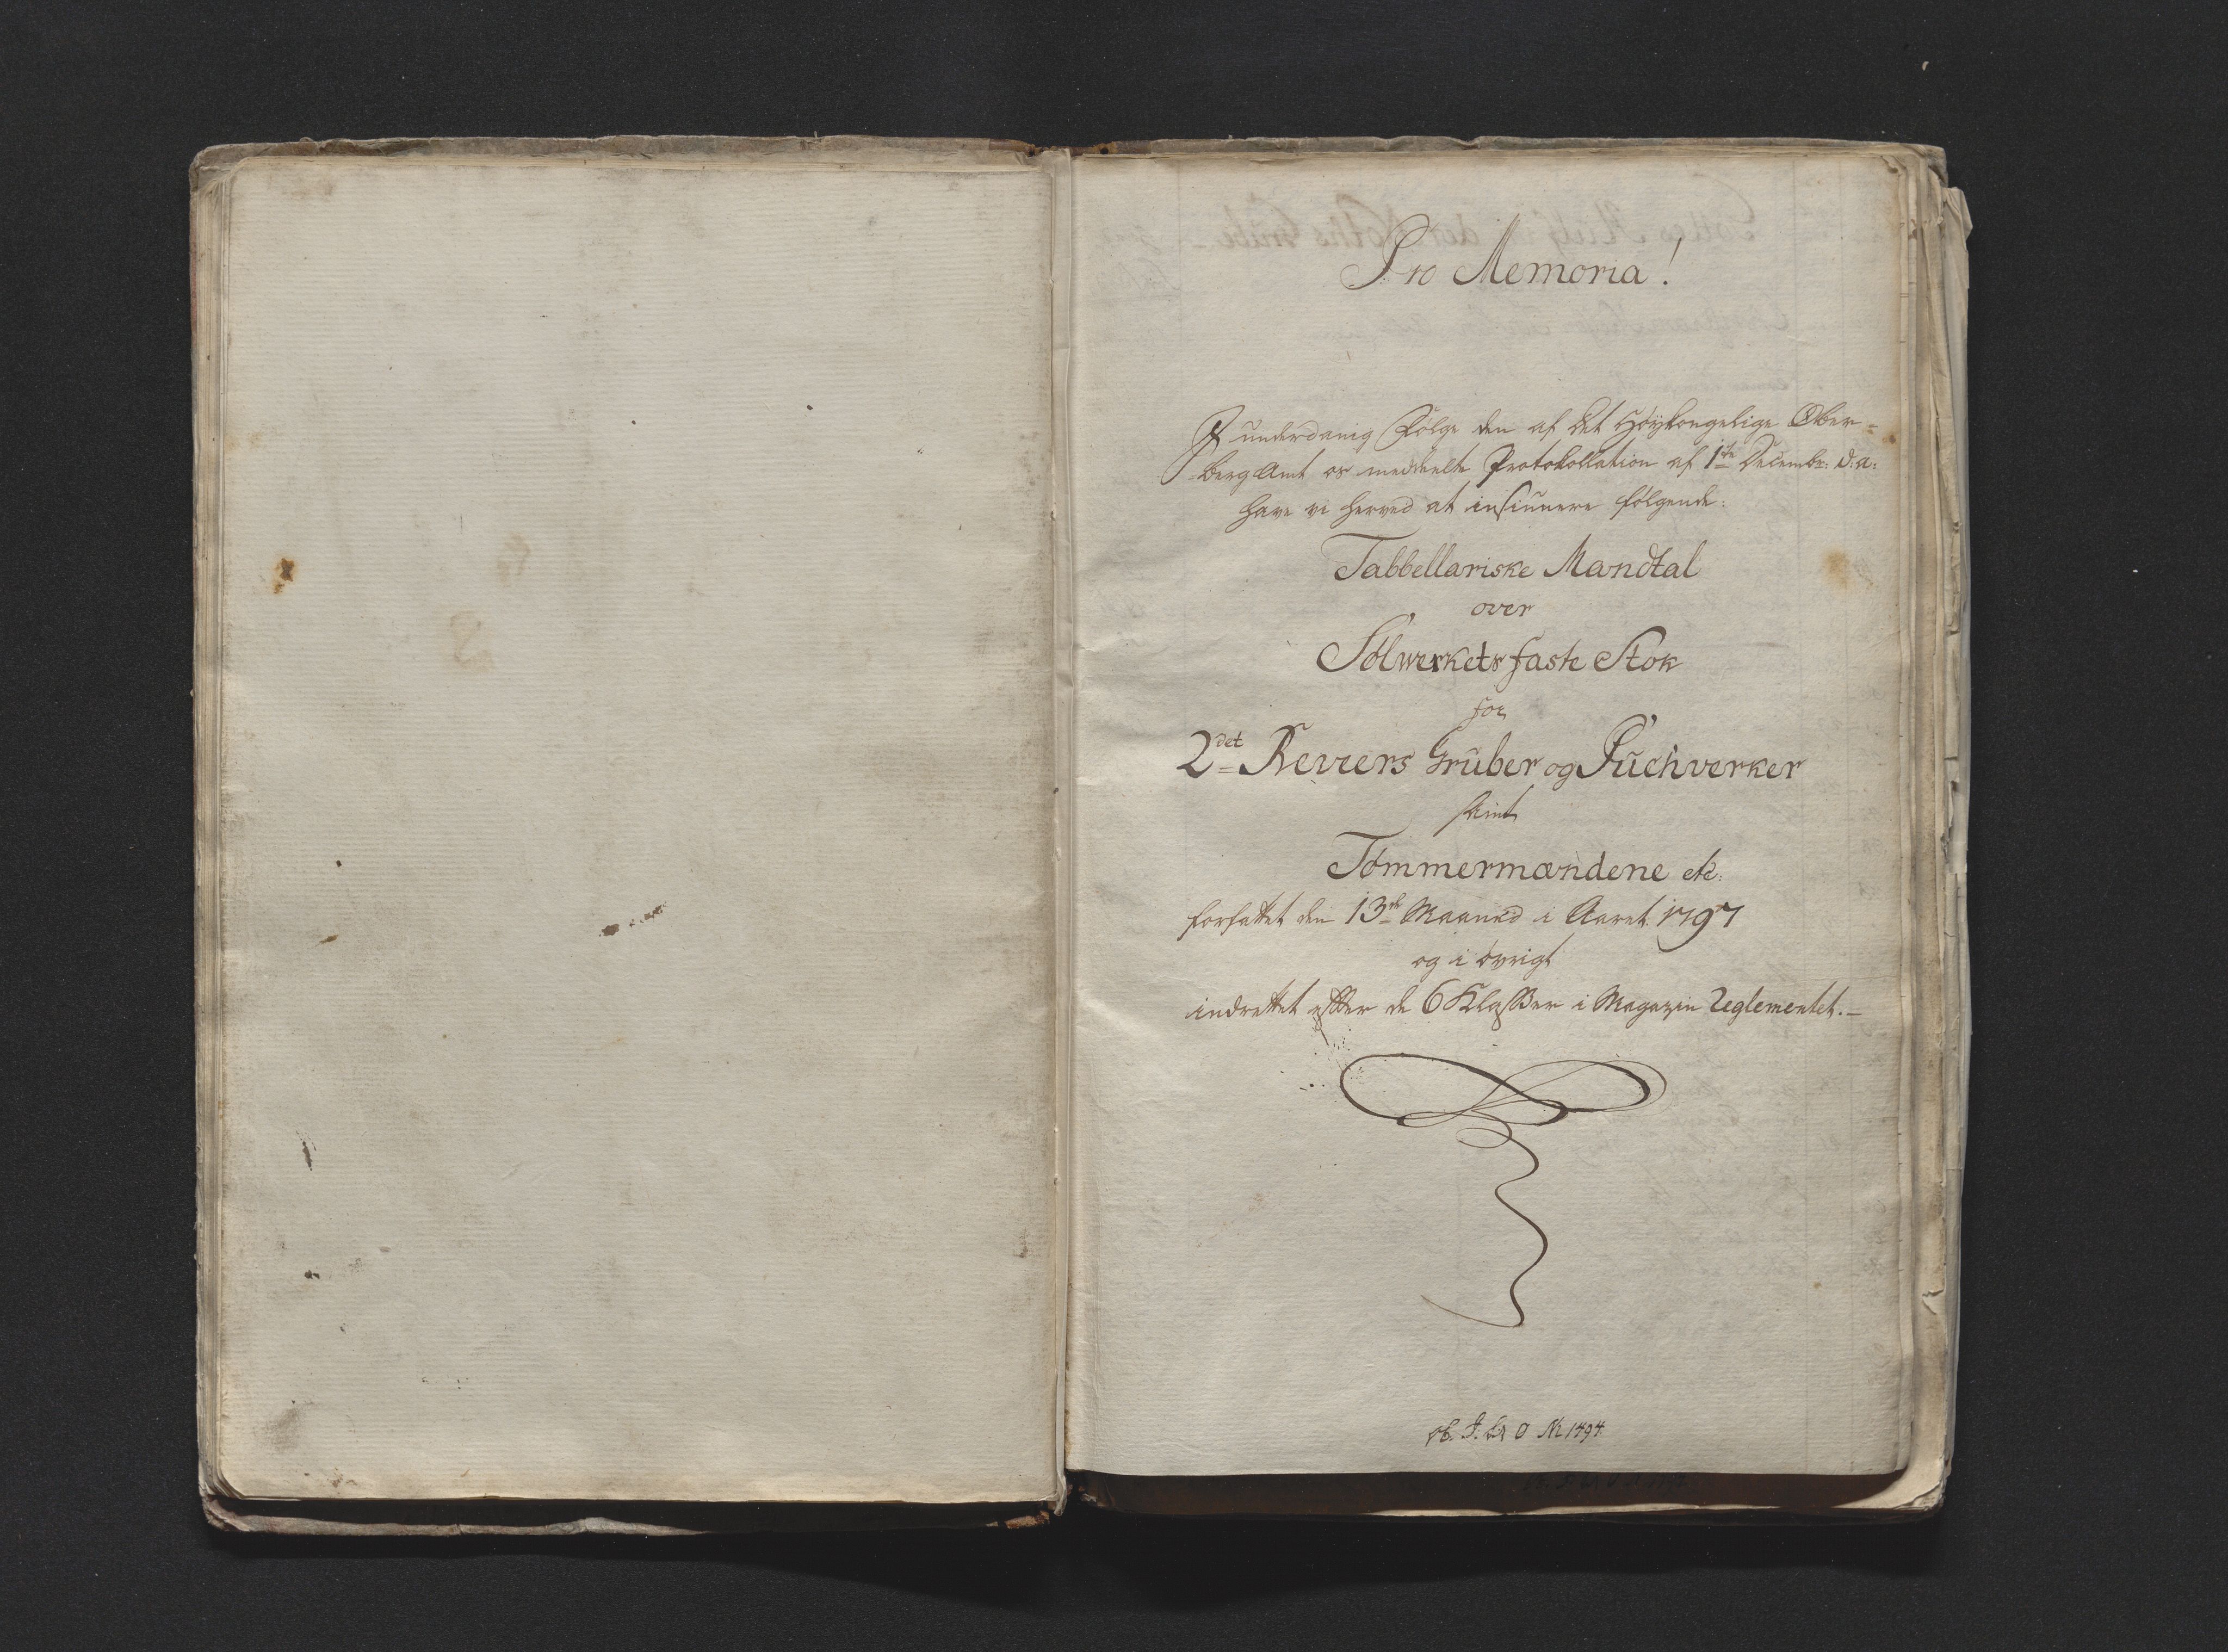 Pro Memoria!
I underdanig Følge den af Det Høykongelige Ober-
bergAmt os meddeelte Protokollation af 1ste Decembr: d: a:
have vi herved at insinuere følgende:
Tabbellariske Mandtal
over
Sølwerkets faste Stok
for
2det Reviers Grüber og Püchverker
samt
Tømmermændene etc:
forfattet den 13de Maaned i Aaret 1797
og i øvrigt
indrettet efter de 6 Klasser i Magazin Reglementet.—
No 1494